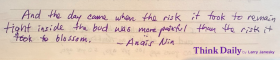 And the day came when the risk it took to remain
tight inside the bud was more painful than the risk it
took to blossom. -Anaïs Nin
Think Daily by Larry Janesky